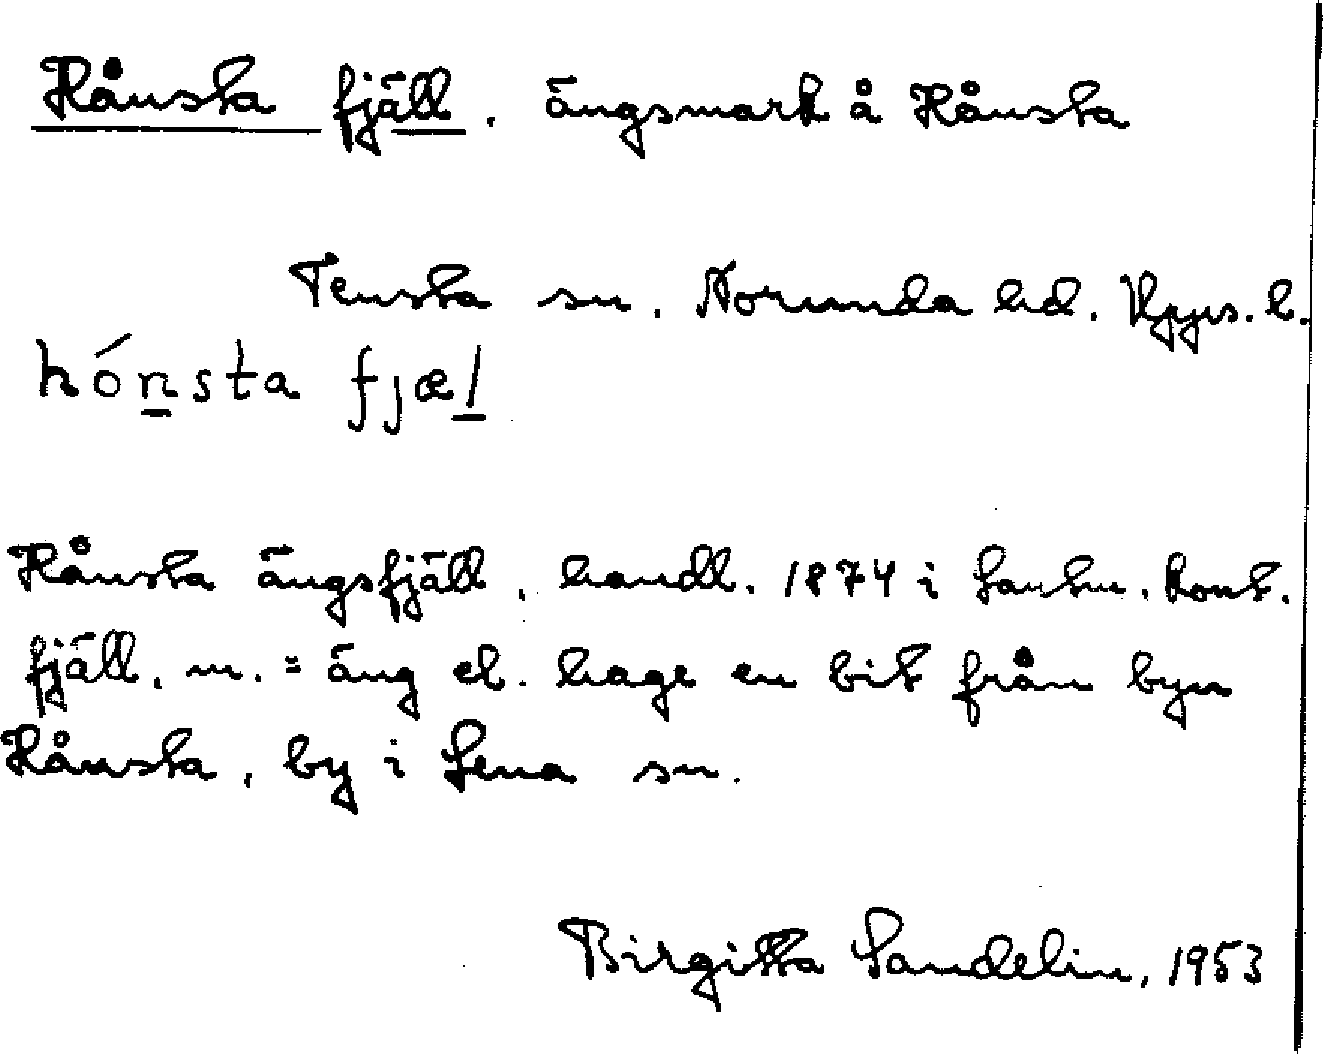 Hånsta fjäll, ängsmark å Hånsta
Tensta sn. Norunda hd. Upps. l.
hónsta fjæl
Hånsta ängsfjäll, handl. 1874 i Lantm. kont.
fjäll, m. = äng el. hage en bit från byn
Hånsta, by i Lena sn.
Birgitta Sandelin, 1953